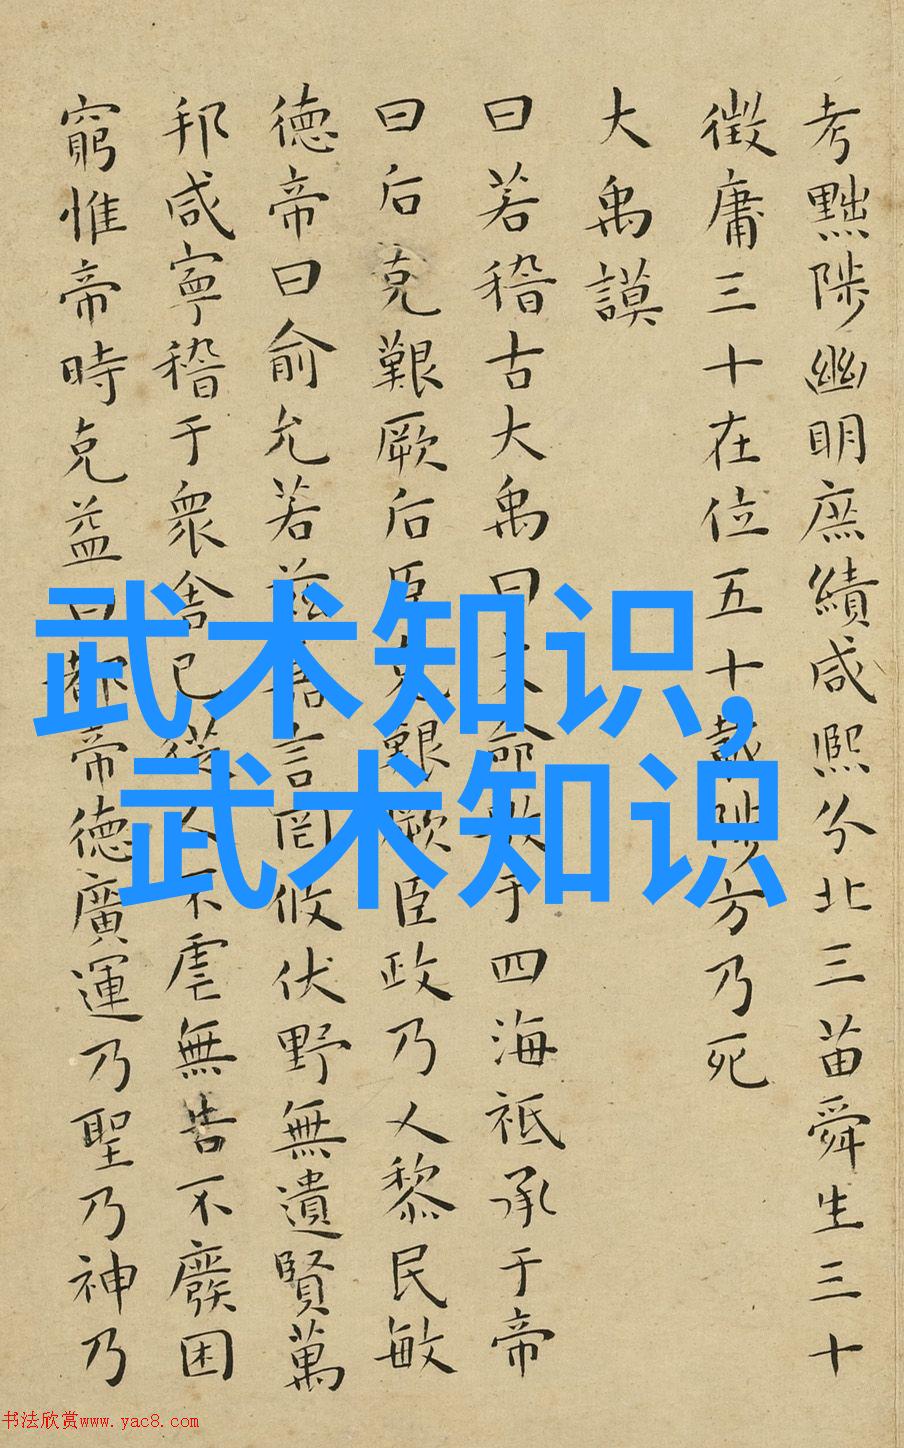 考黜陟幽明庶績咸熙分北三苗舜生三十
徵庸三十在位五十載陟方乃死
大禹謨
曰若稽古大禹曰文命敷于四海祗承于帝
曰后克艱厥后臣克艱厥臣政乃乂黎民敏
德帝曰俞允若茲嘉言罔攸伏野無遺賢萬
邦咸寧稽于衆舍己從人不虐無告不廢困
窮惟帝時克益曰都帝德廣運乃聖乃神乃
武术知识,
武术知识
书法欣赏www.yac8.com